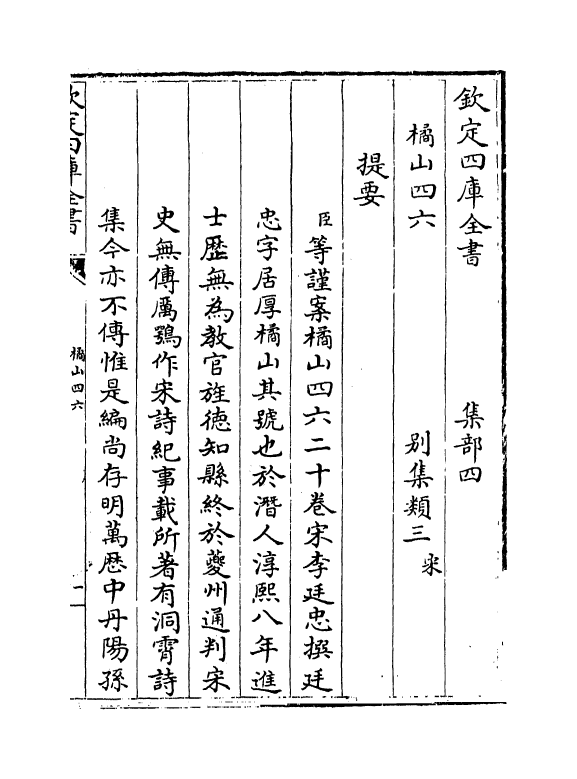 欽定四庫全書　集部四
橘山四六　别集類三宋
提要
臣等謹案橘山四六二十卷宋李廷忠撰廷
忠字居厚橘山其號也於潛人淳熙八年進
士歴無為教官旌徳知縣終於夔州通判宋
史無傳厲鶚作宋詩紀事載所著有洞霄詩
集今亦不傳惟是編尚存明萬歴中丹陽孫
欽定四庫全書　橘山四六　一